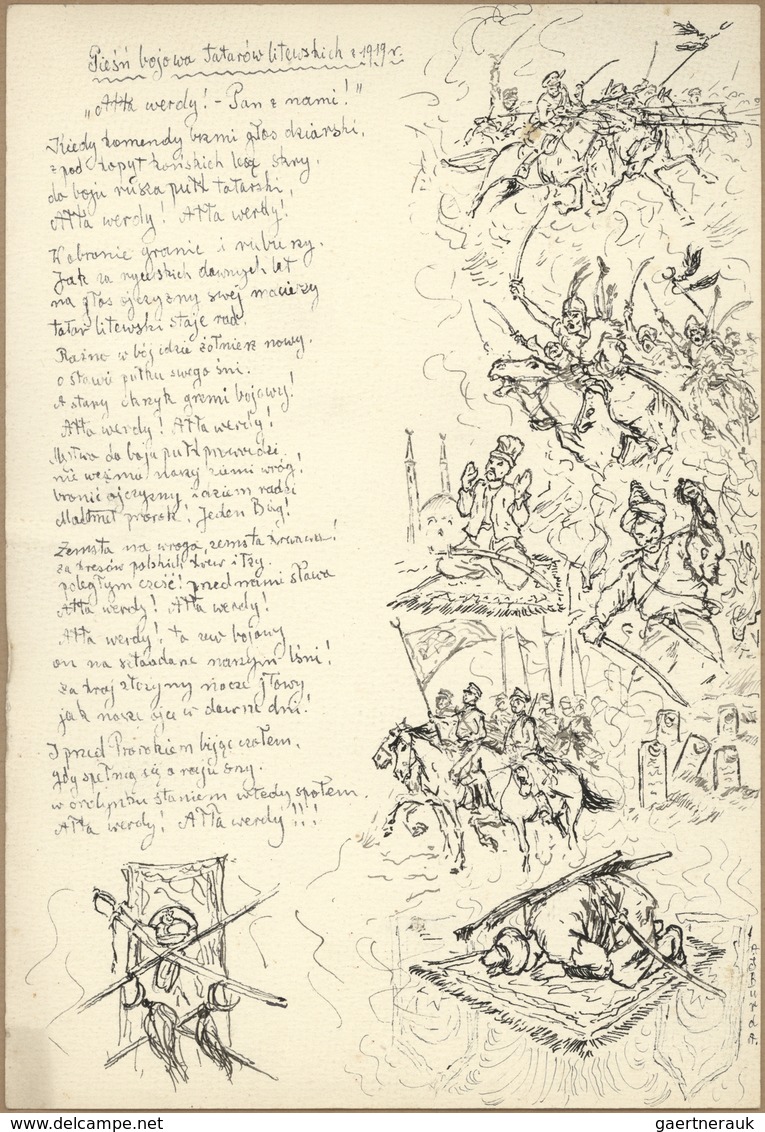 Pieśń bojowa tatarów litewskich z 1919 r.
„Ałła werdy! - Pan z nami!"
Kiedy komendy brzmi głos dziarski,
z pod kopyt końskich lecą skry,
do boju rusza pułk tatarski,
Ałła werdy! Ałła werdy!
K obronie granic i rubieży,
Jak za rycerskich dawnych lat
na głos ojczyzny swej macierzy
tatar litewski staje rad.
Raźno w bój idzie żołnierz nowy,
o sławie pułku swego śni.
A stary okrzyk grzmi bojowy!
Ałła werdy! Ałła werdy!
do boju pułk prowadzi,
nie weźmie naszej ziemi wróg!
bronić ojczyzny radzi
prorok! Jeden Bóg!
Zemsta na wroga, zemsta krwawa!
za kresów polskich krew i łzy.
poległym cześć! przed nami sława
Ałła werdy! Ałła werdy!
Ałła werdy! to zew bojowy
on na sztandarze naszym lśni!
za kraj złożymy nasze głowy,
jak nasze ojce w dawne dni!
I przed Prorokiem bijąc czołem,
gdy spełnią się o raju sny.
w ordynku staniem wtedy społem
Ałła werdy! Ałła werdy!!!
delcampe.net
gaertnerauk